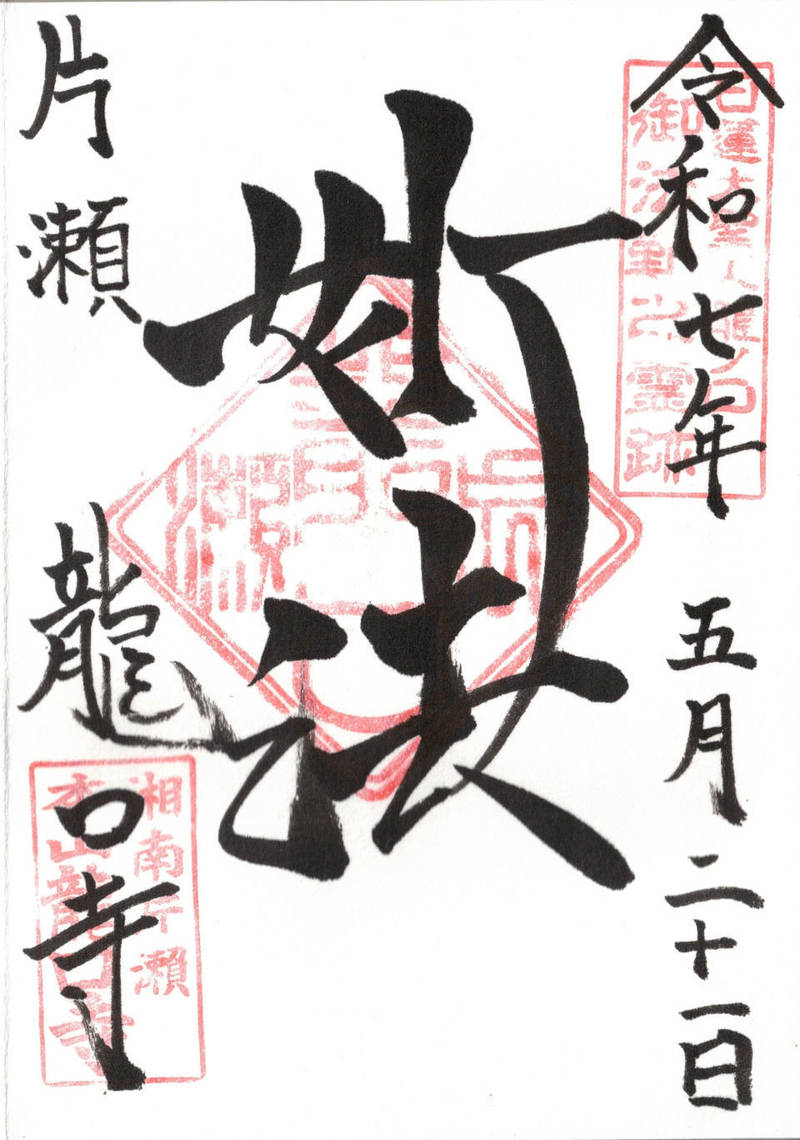 令和七年 五月二十一日
日蓮大聖人龍ノ口
御法難之霊跡
妙法
片瀬 龍口寺
湘南片瀬
本山龍口寺